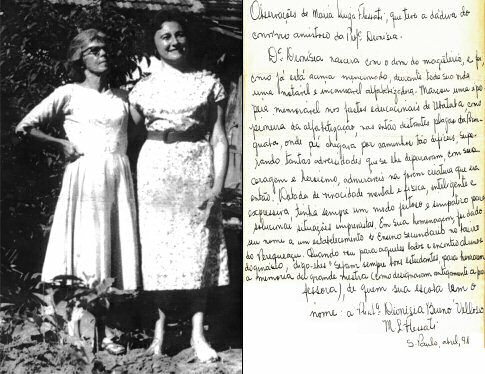 Observações de Maria Luiza Flessati, que teve a dádiva do
convívio amistoso da Profª Dionísia.
Dª Dionísia nascera com o dom do magistério, e foi
como já está acima mencionado, durante toda sua vida
uma notável e incansável alfabetizadora. Marcou uma epo-
peia memorável nos fastos educacionais de Ubatuba como
pioneira da alfabetização nas então distantes plagas da
onde só chegava por caminhos tão difíceis, supe-
rando tantas adversidades que se lhe deparavam, em sua
coragem e heroísmo, admiráveis na jovem criativa que era
então. Dotada de vivacidade mental e física, inteligente e
expressiva, tinha sempre um modo jeitoso e simpático para
solucionar situações imprevistas. Em sua homenagem, foi dado
seu nome a um estabelecimento de Ensino Secundário no bairro
do Perequeaçu. Quando vou para aqueles lados e encontro alunos
do ginásio, digo-lhes: Sejam sempre bons estudantes, para honrarem
a memória da grande mestra (como designavam antigamente a pro-
fessora), de quem sua escola tem o
nome: a Profª Dionísia Bueno Velloso
M. L. Flessati
S. Paulo, abril, 98